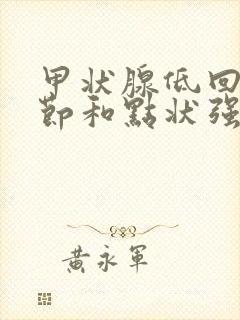 甲状腺低回
節和點状强
黄永軍